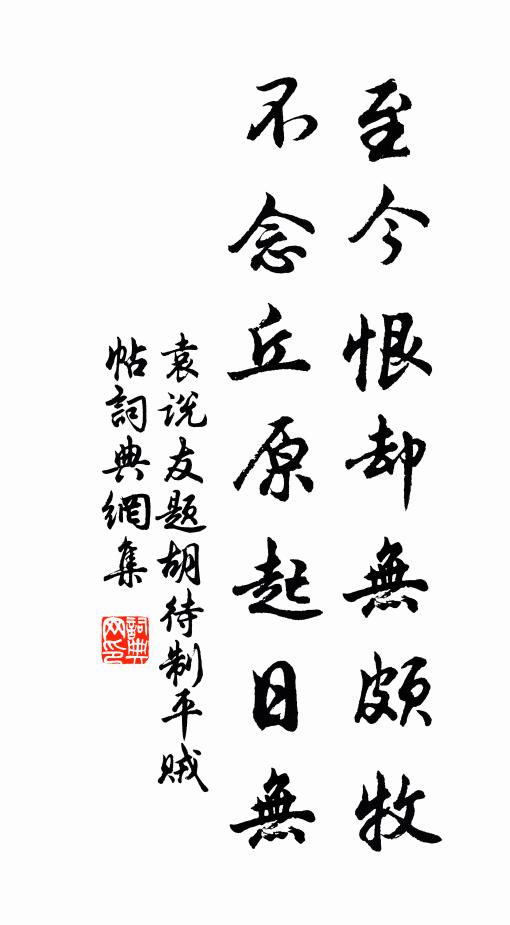 至今恨却無頗牧
不念丘原起日無
袁说友题胡待制平贼
帖詞典網集
詞典网印